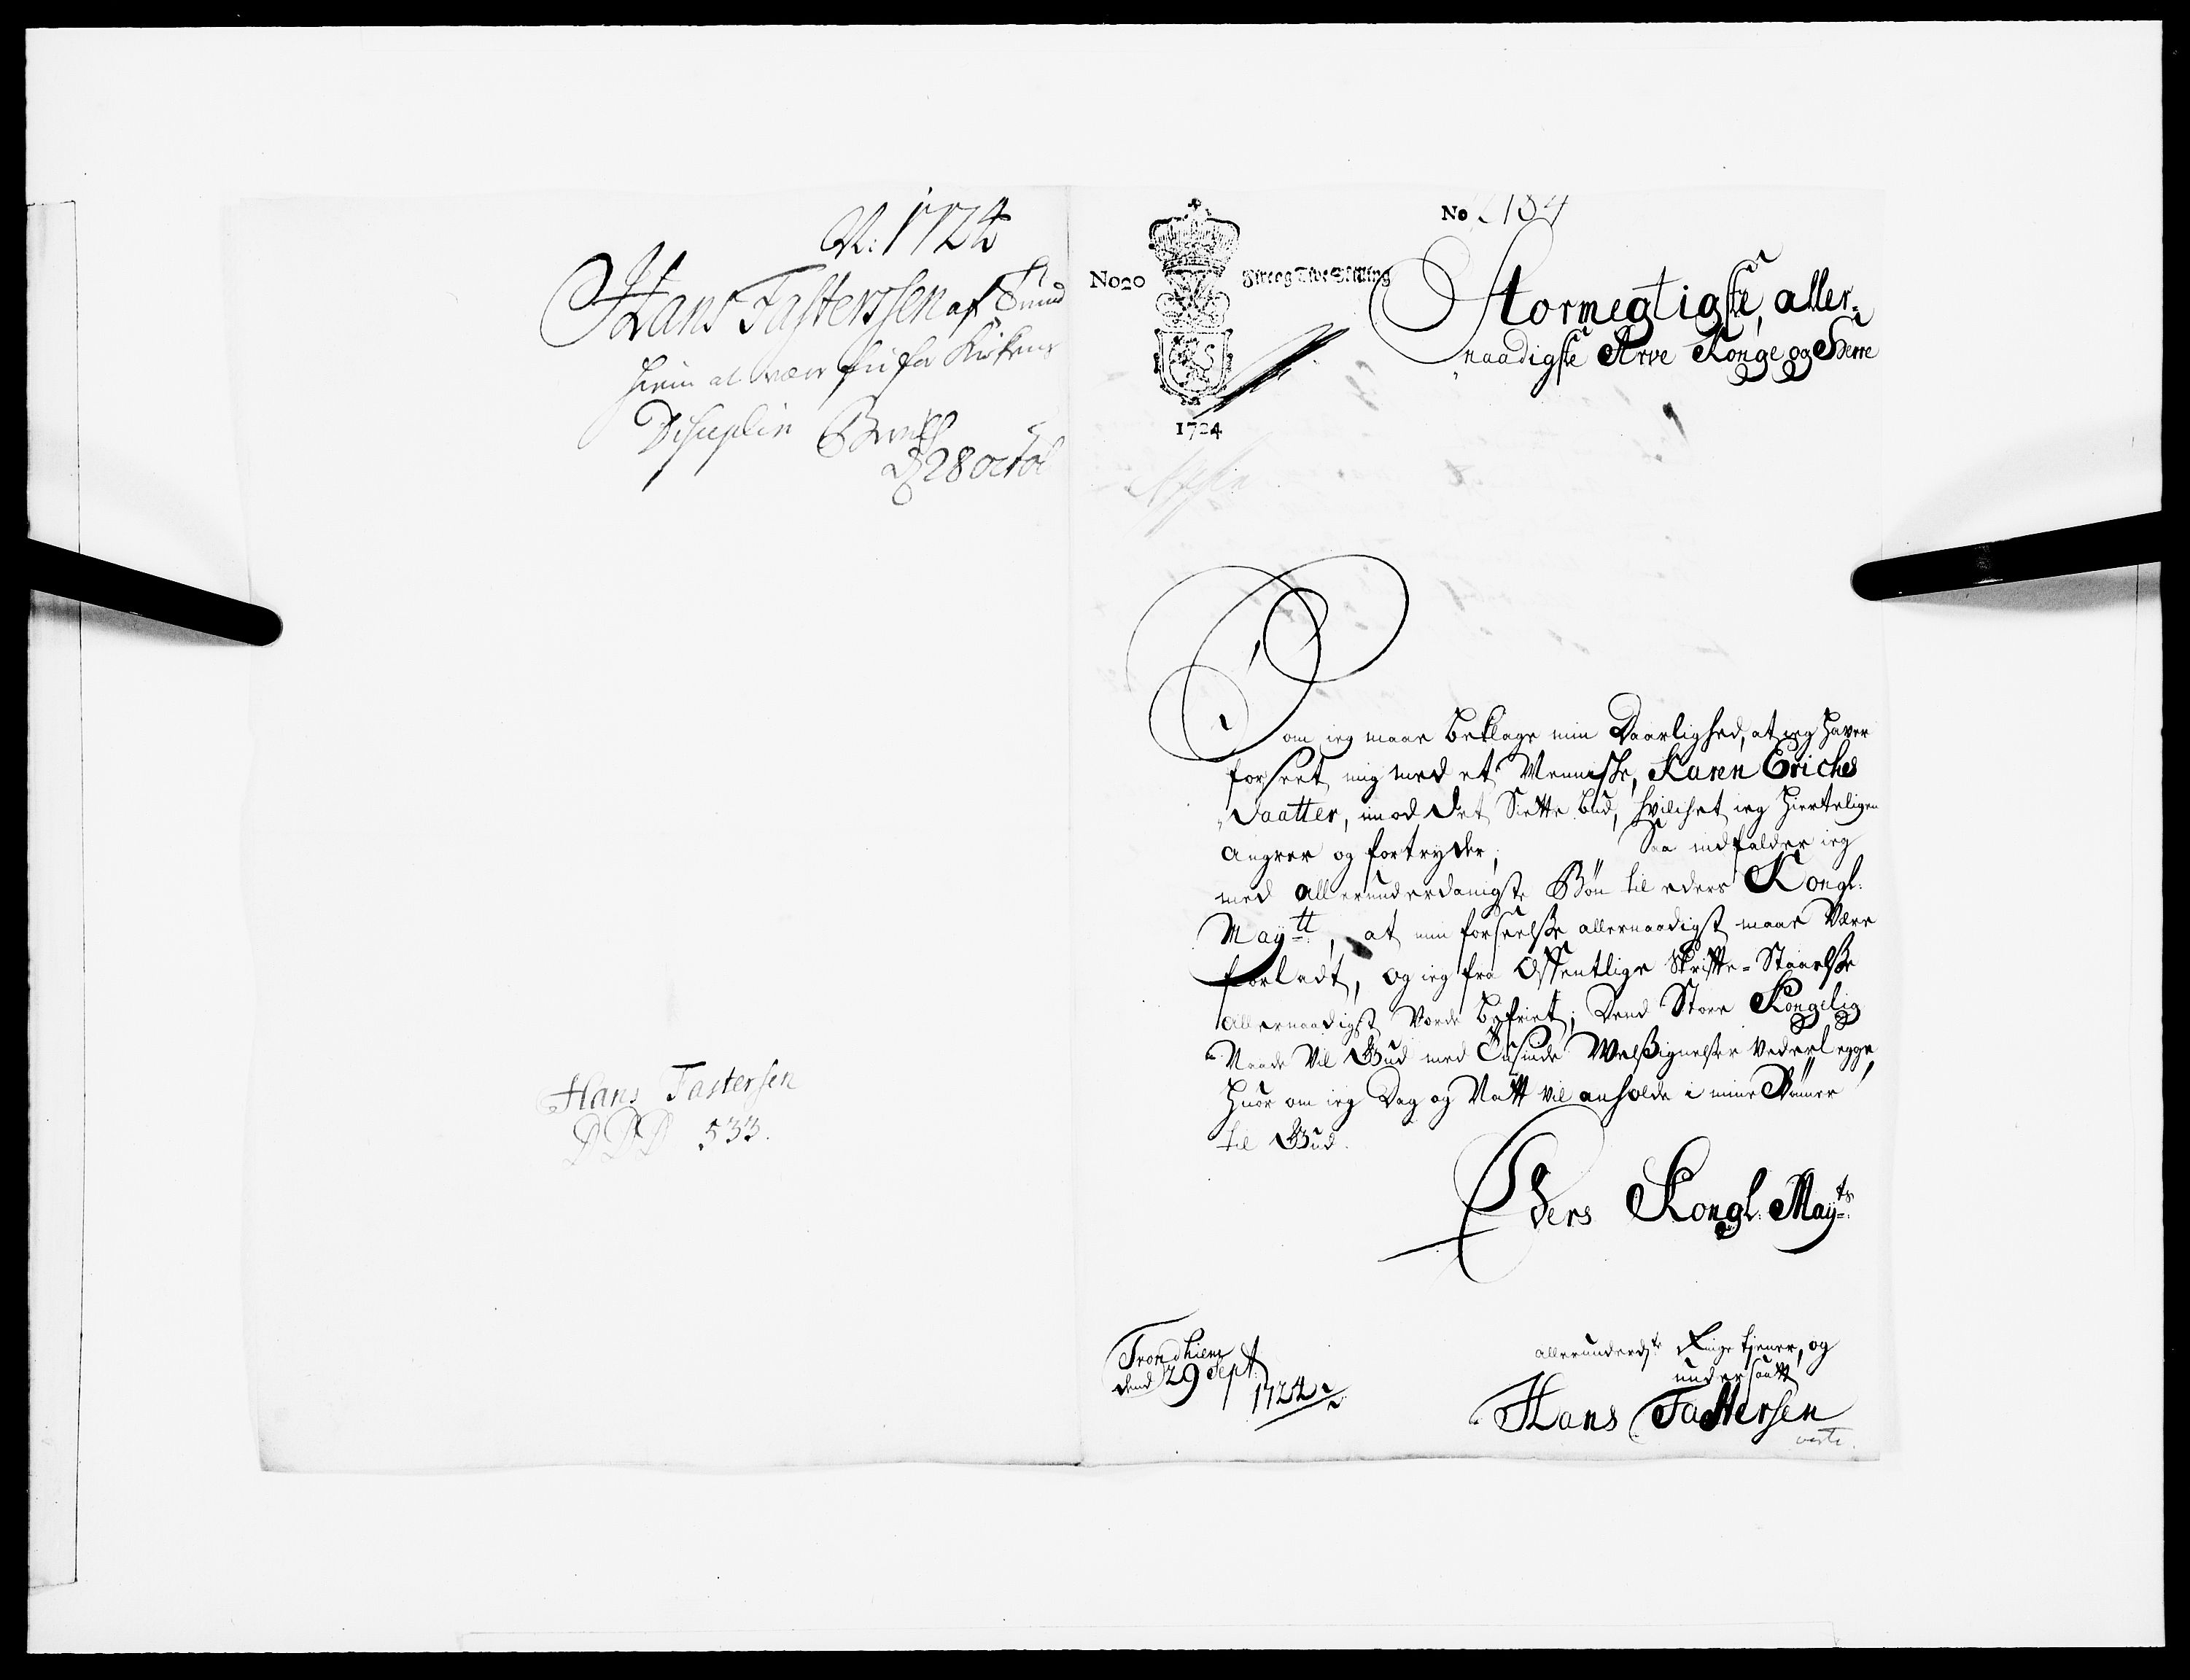 N: 1724
Hans Fastersen af Trund
hiem at være fri for Kirkens
Disciplin Bevilg
D 28 octob
Hans Fastersen
DDD 533.
No 2184
No20 Fire og Tive Skilling
1724
Stormegtigste, aller-
naadigste Arve Konge og Herre
Som ieg maae beklage min Daarlighed, at ieg haver
forseet mig med et Menniske, Karen Eriches
Daatter, imod det Siette bud, hvilchet ieg hierteligen
Angrer og fortryder; Saa indfalder ieg
med allerunderdanigste Bøn til eders Kongl:
Maytt, at min forseelse allernaadigst maae Være
forladt, og ieg fra Offentlige Skrifte-Staaelse
allernaadigst Vorde befriet; Dend Store Kongelig
Naade Vil Gud med Tusinde Welsignelser Vederlegge,
huor om ieg Dag og Natt vil anholde i mine Bønner
til Gud.
Eders Kongl: Mayts
Trondhiem
dend 29 Sept:
1724
allerunderdste Ringe tjener, og
undersaatt
Hans Fastersen
verte.